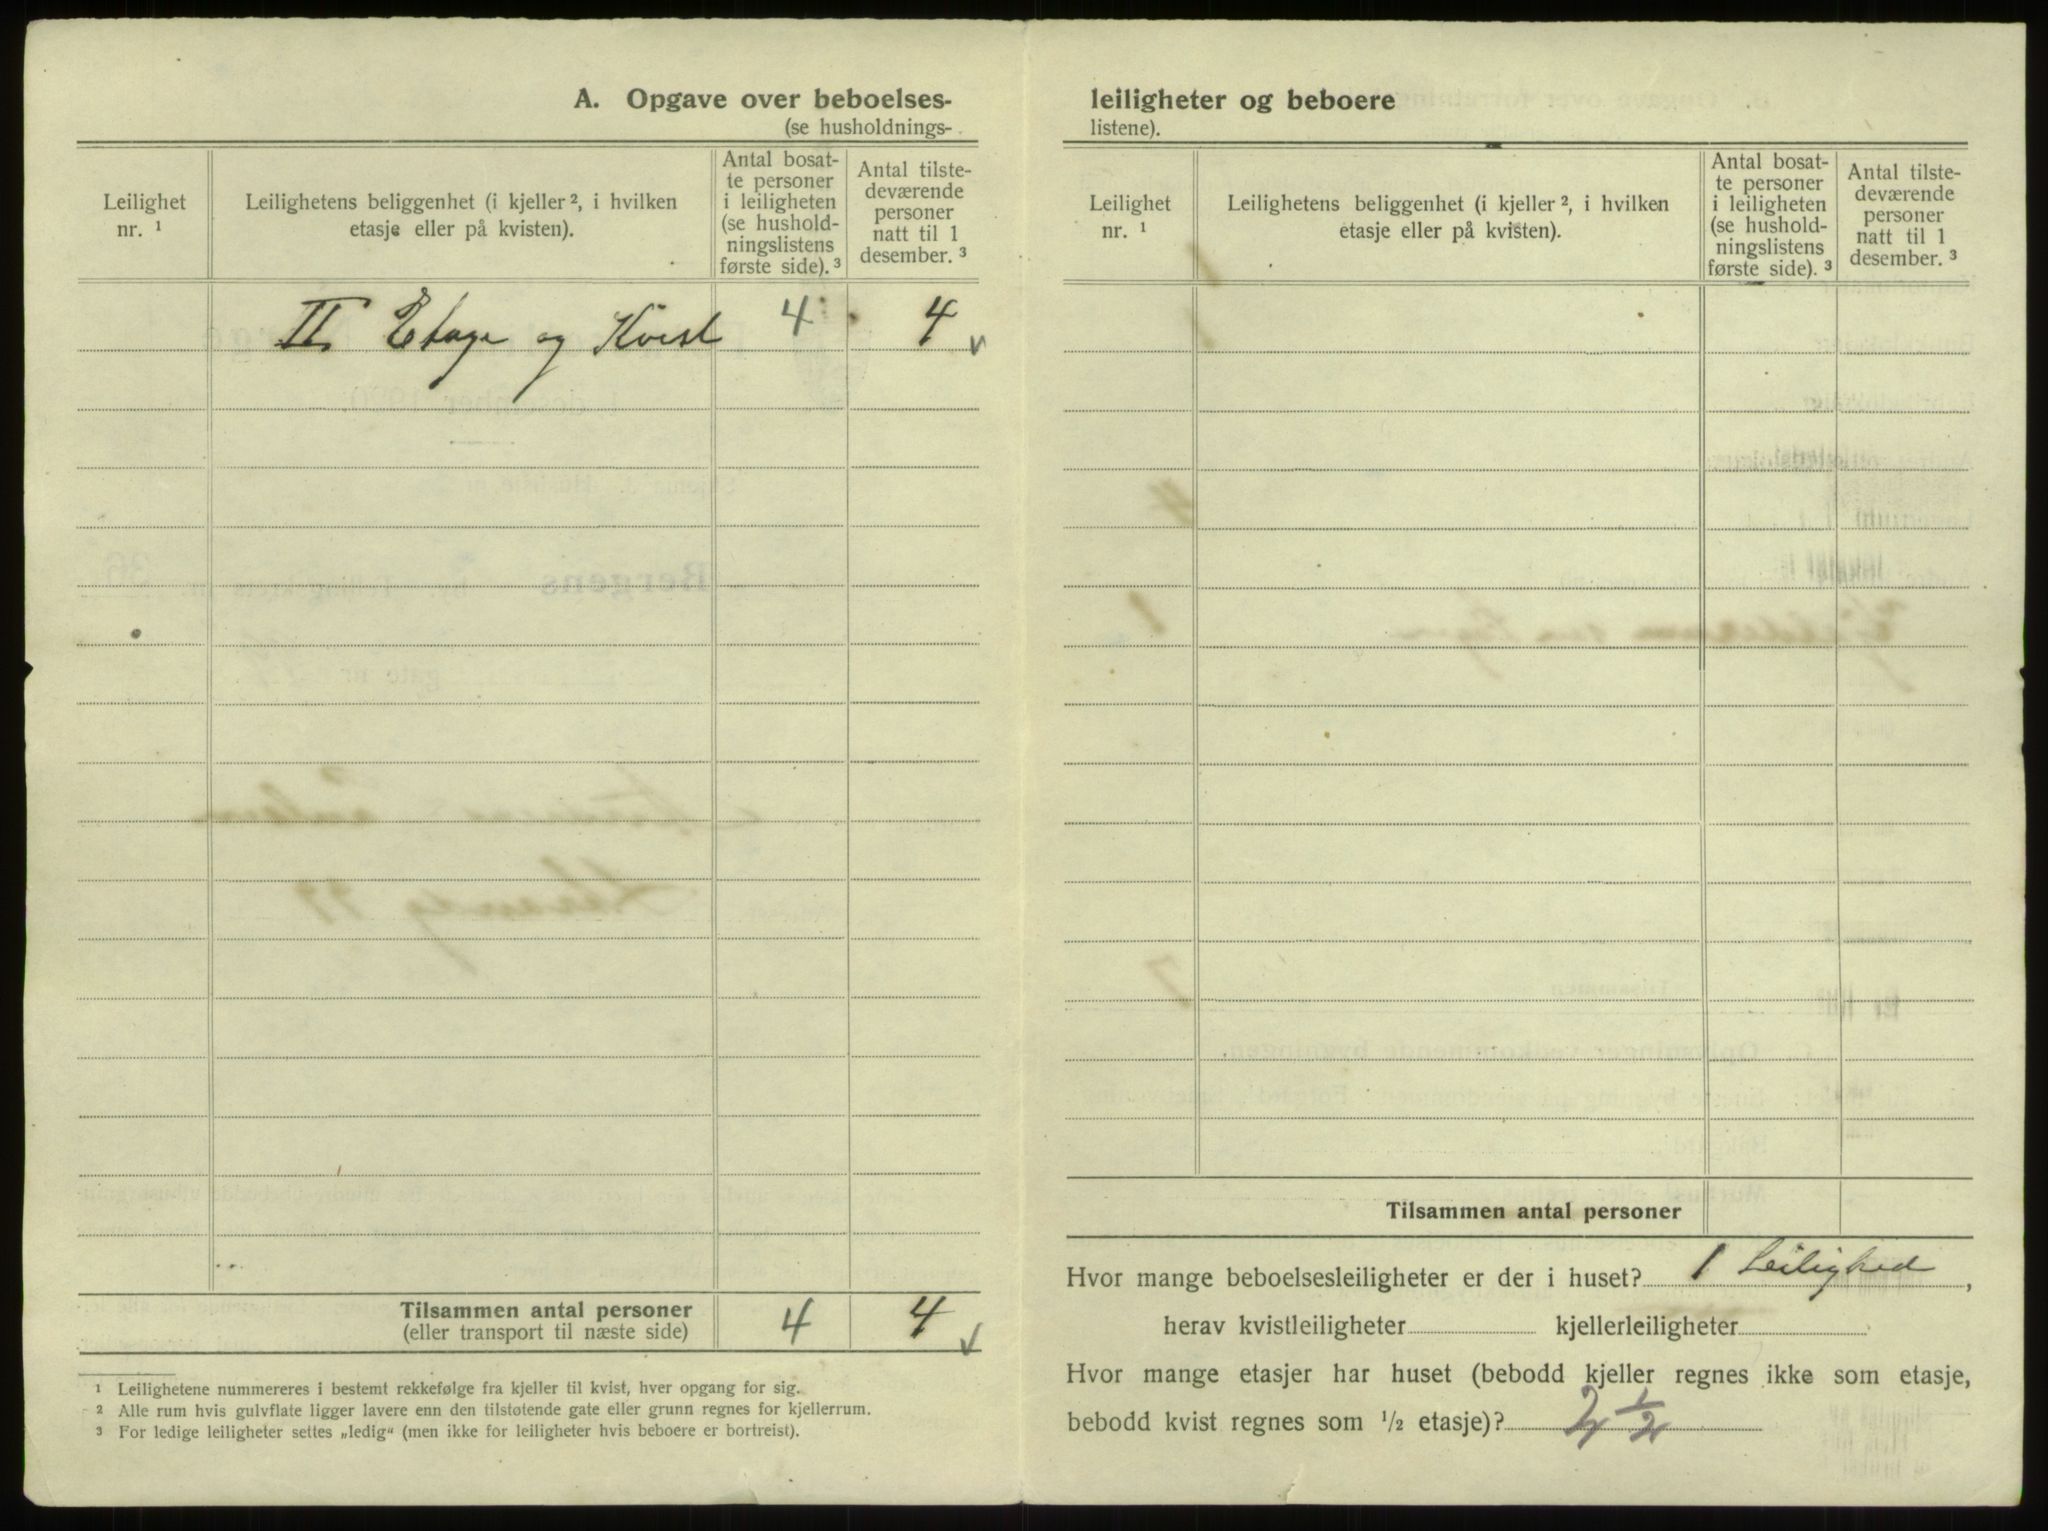 A. Opgave over beboelses-
(se husholdnings-
Leilighet
nr. ¹
Leilighetens beliggenhet (i kjeller ², i hvilken
etasje eller på kvisten).
Antal bosat-
te personer
i leiligheten
(se hushold-
ningslistens
første side). ³
Antal tilste-
deværende
personer
natt til 1
desember. ³
II Etage og Kvist 4 4
Tilsammen antal personer 4 4
(eller transport til næste side)
¹ Leilighetene nummereres i bestemt rekkefølge fra kjeller til kvist, hver opgang for sig.
² Alle rum hvis gulvflate ligger lavere enn den tilstøtende gate eller grunn regnes for kjellerrum.
³ For ledige leiligheter settes „ledig“ (men ikke for leiligheter hvis beboere er bortreist).
leiligheter og beboere
listene).
Leilighet
nr. ¹
Leilighetens beliggenhet (i kjeller ², i hvilken
etasje eller på kvisten).
Antal bosat-
te personer
i leiligheten
(se hushold-
ningslistens
første side). ³
Antal tilste-
deværende
personer
natt til 1
desember. ³
Tilsammen antal personer
Hvor mange beboelsesleiligheter er der i huset? 1 Leilighed,
herav kvistleiligheter kjellerleiligheter
Hvor mange etasjer har huset (bebodd kjeller regnes ikke som etasje,
bebodd kvist regnes som ½ etasje)? 2 ½